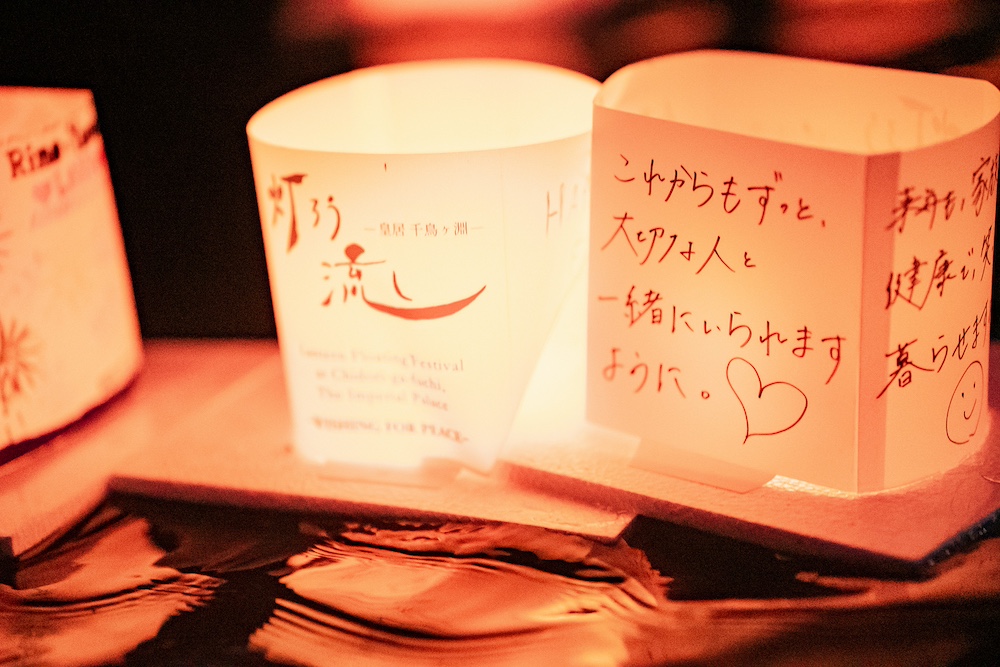 Rina
灯ろう
流し
―皇居 千鳥ヶ淵―
Lantern Floating Festival
at Chidori-ga-fuchi,
The Imperial Palace
~WISHING FOR PEACE~
これからもずっと、
大切な人と
一緒にいられます
ように。
健康で、笑
暮らせます